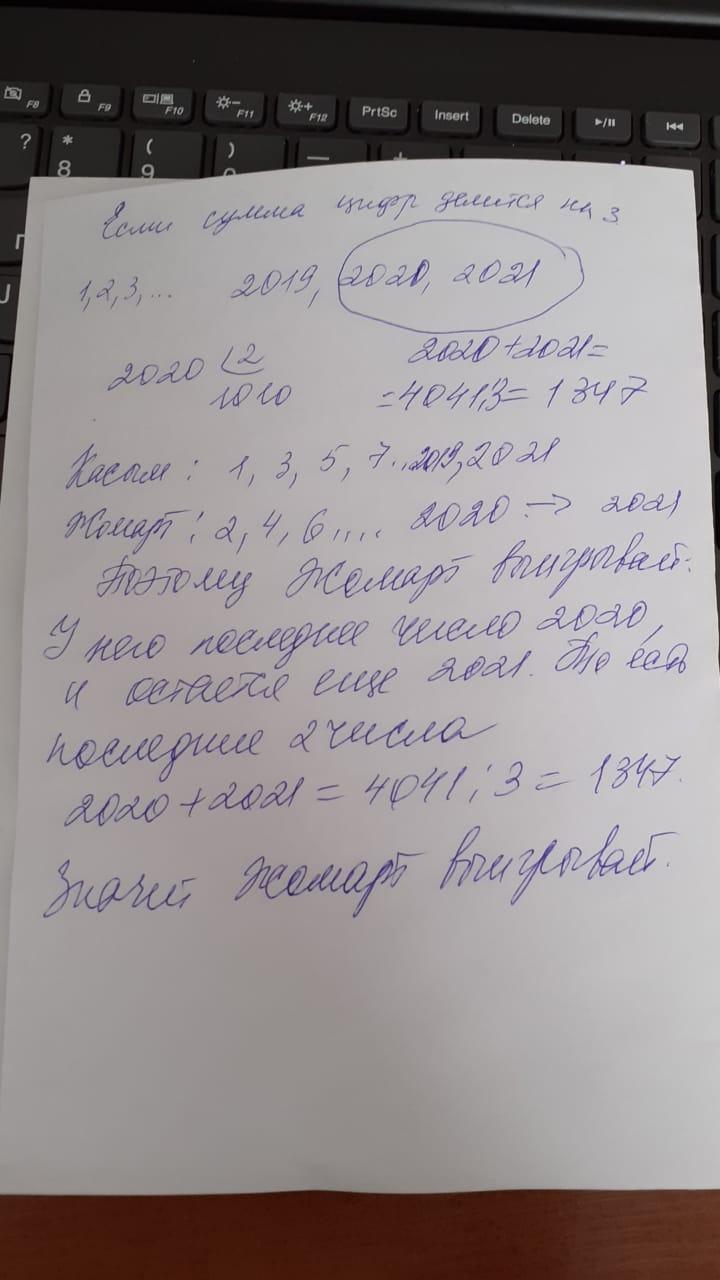 F8
F9
F10
F11
F12
PrtSc
Insert
Delete
?
*
8
(
9
)
Если сумма цифр делится на 3
1, 2, 3, ... 2019, 2020, 2021
2020 2
1010
2020+2021=
=4041:3=1347
Касым: 1, 3, 5, 7...2019, 2021
Жомарт: 2, 4, 6.... 2020 → 2021
Поэтому Жомарт выигрывает.
У него последнее число 2020,
и остается еще 2021. То есть
последние 2 числа
2020+2021=4041:3=1347.
Значит Жомарт выигрывает.